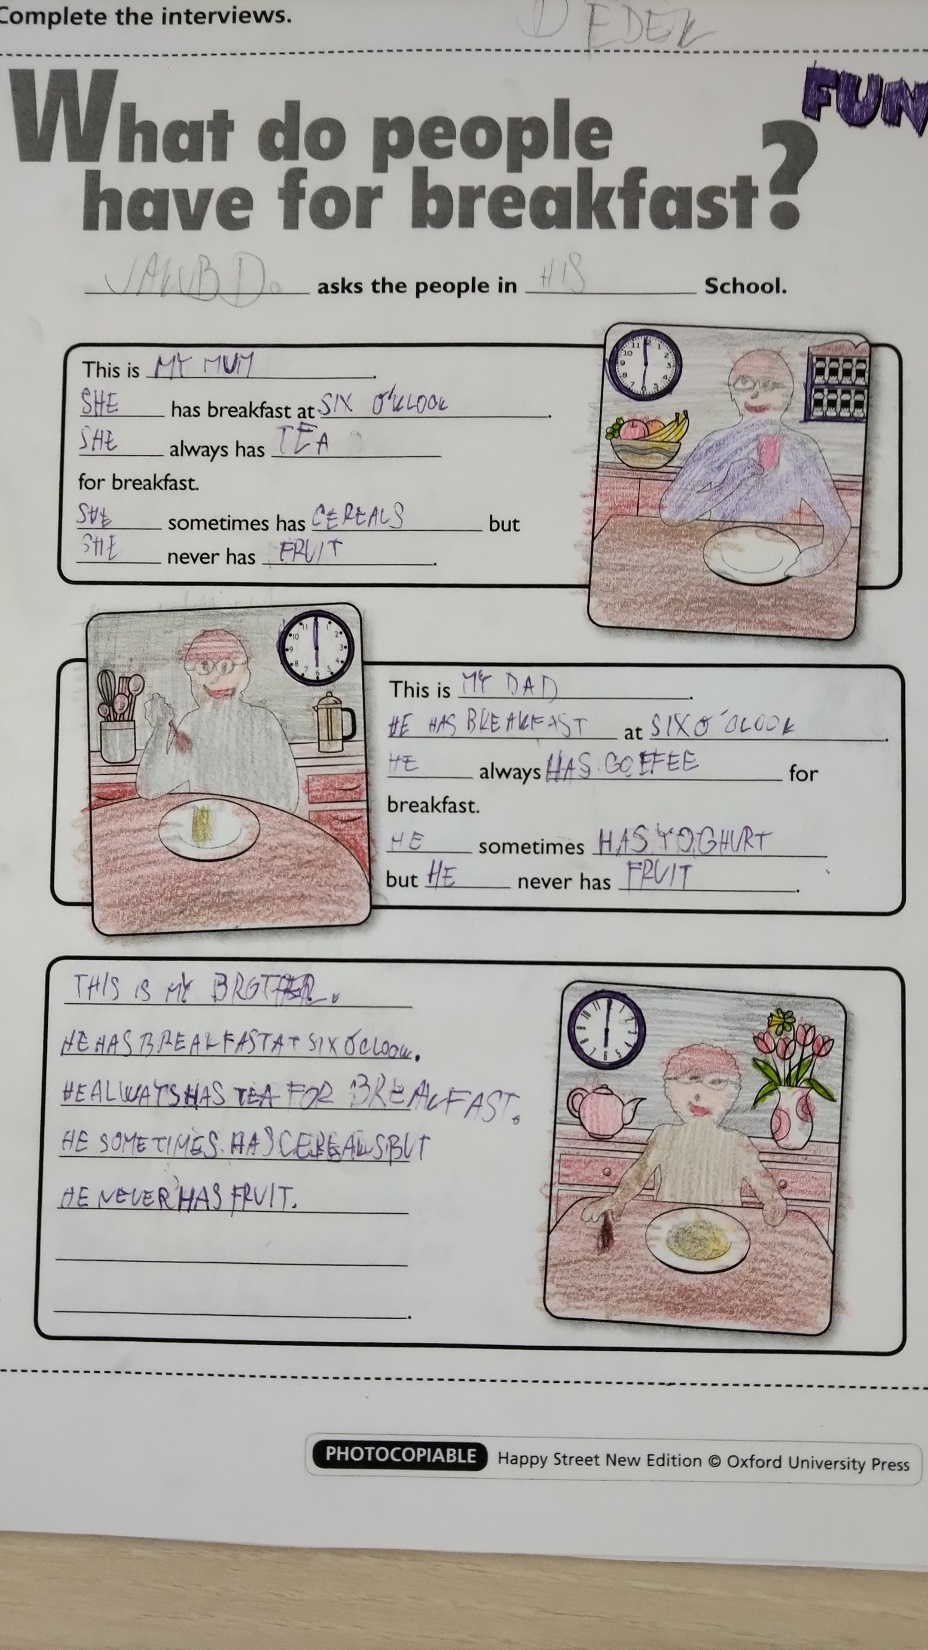 Complete the interviews.
DEDEK
FUN
What do people
have for breakfast?
JAKUB D. asks the people in HIS School.
This is MY MUM.
SHE has breakfast at SIX O'CLOCK.
SHE always has TEA
for breakfast.
SHE sometimes has CEREALS but
SHE never has FRUIT.
This is MY DAD.
HE HAS BREAKFAST at SIX O'CLOCK.
HE always HAS COFFEE for
breakfast.
HE sometimes HAS YOGHURT
but HE never has FRUIT.
THIS IS MY BROTHER.
HE HAS BREAKFAST AT SIX O'CLOCK.
HE ALWAYS HAS TEA FOR BREAKFAST.
HE SOMETIMES HAS CEREALS BUT
HE NEVER HAS FRUIT.
PHOTOCOPIABLE Happy Street New Edition © Oxford University Press